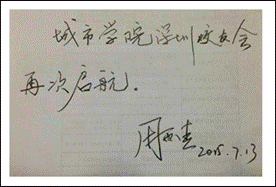 城市学院深圳校友会
再次启航.
2015.7.13